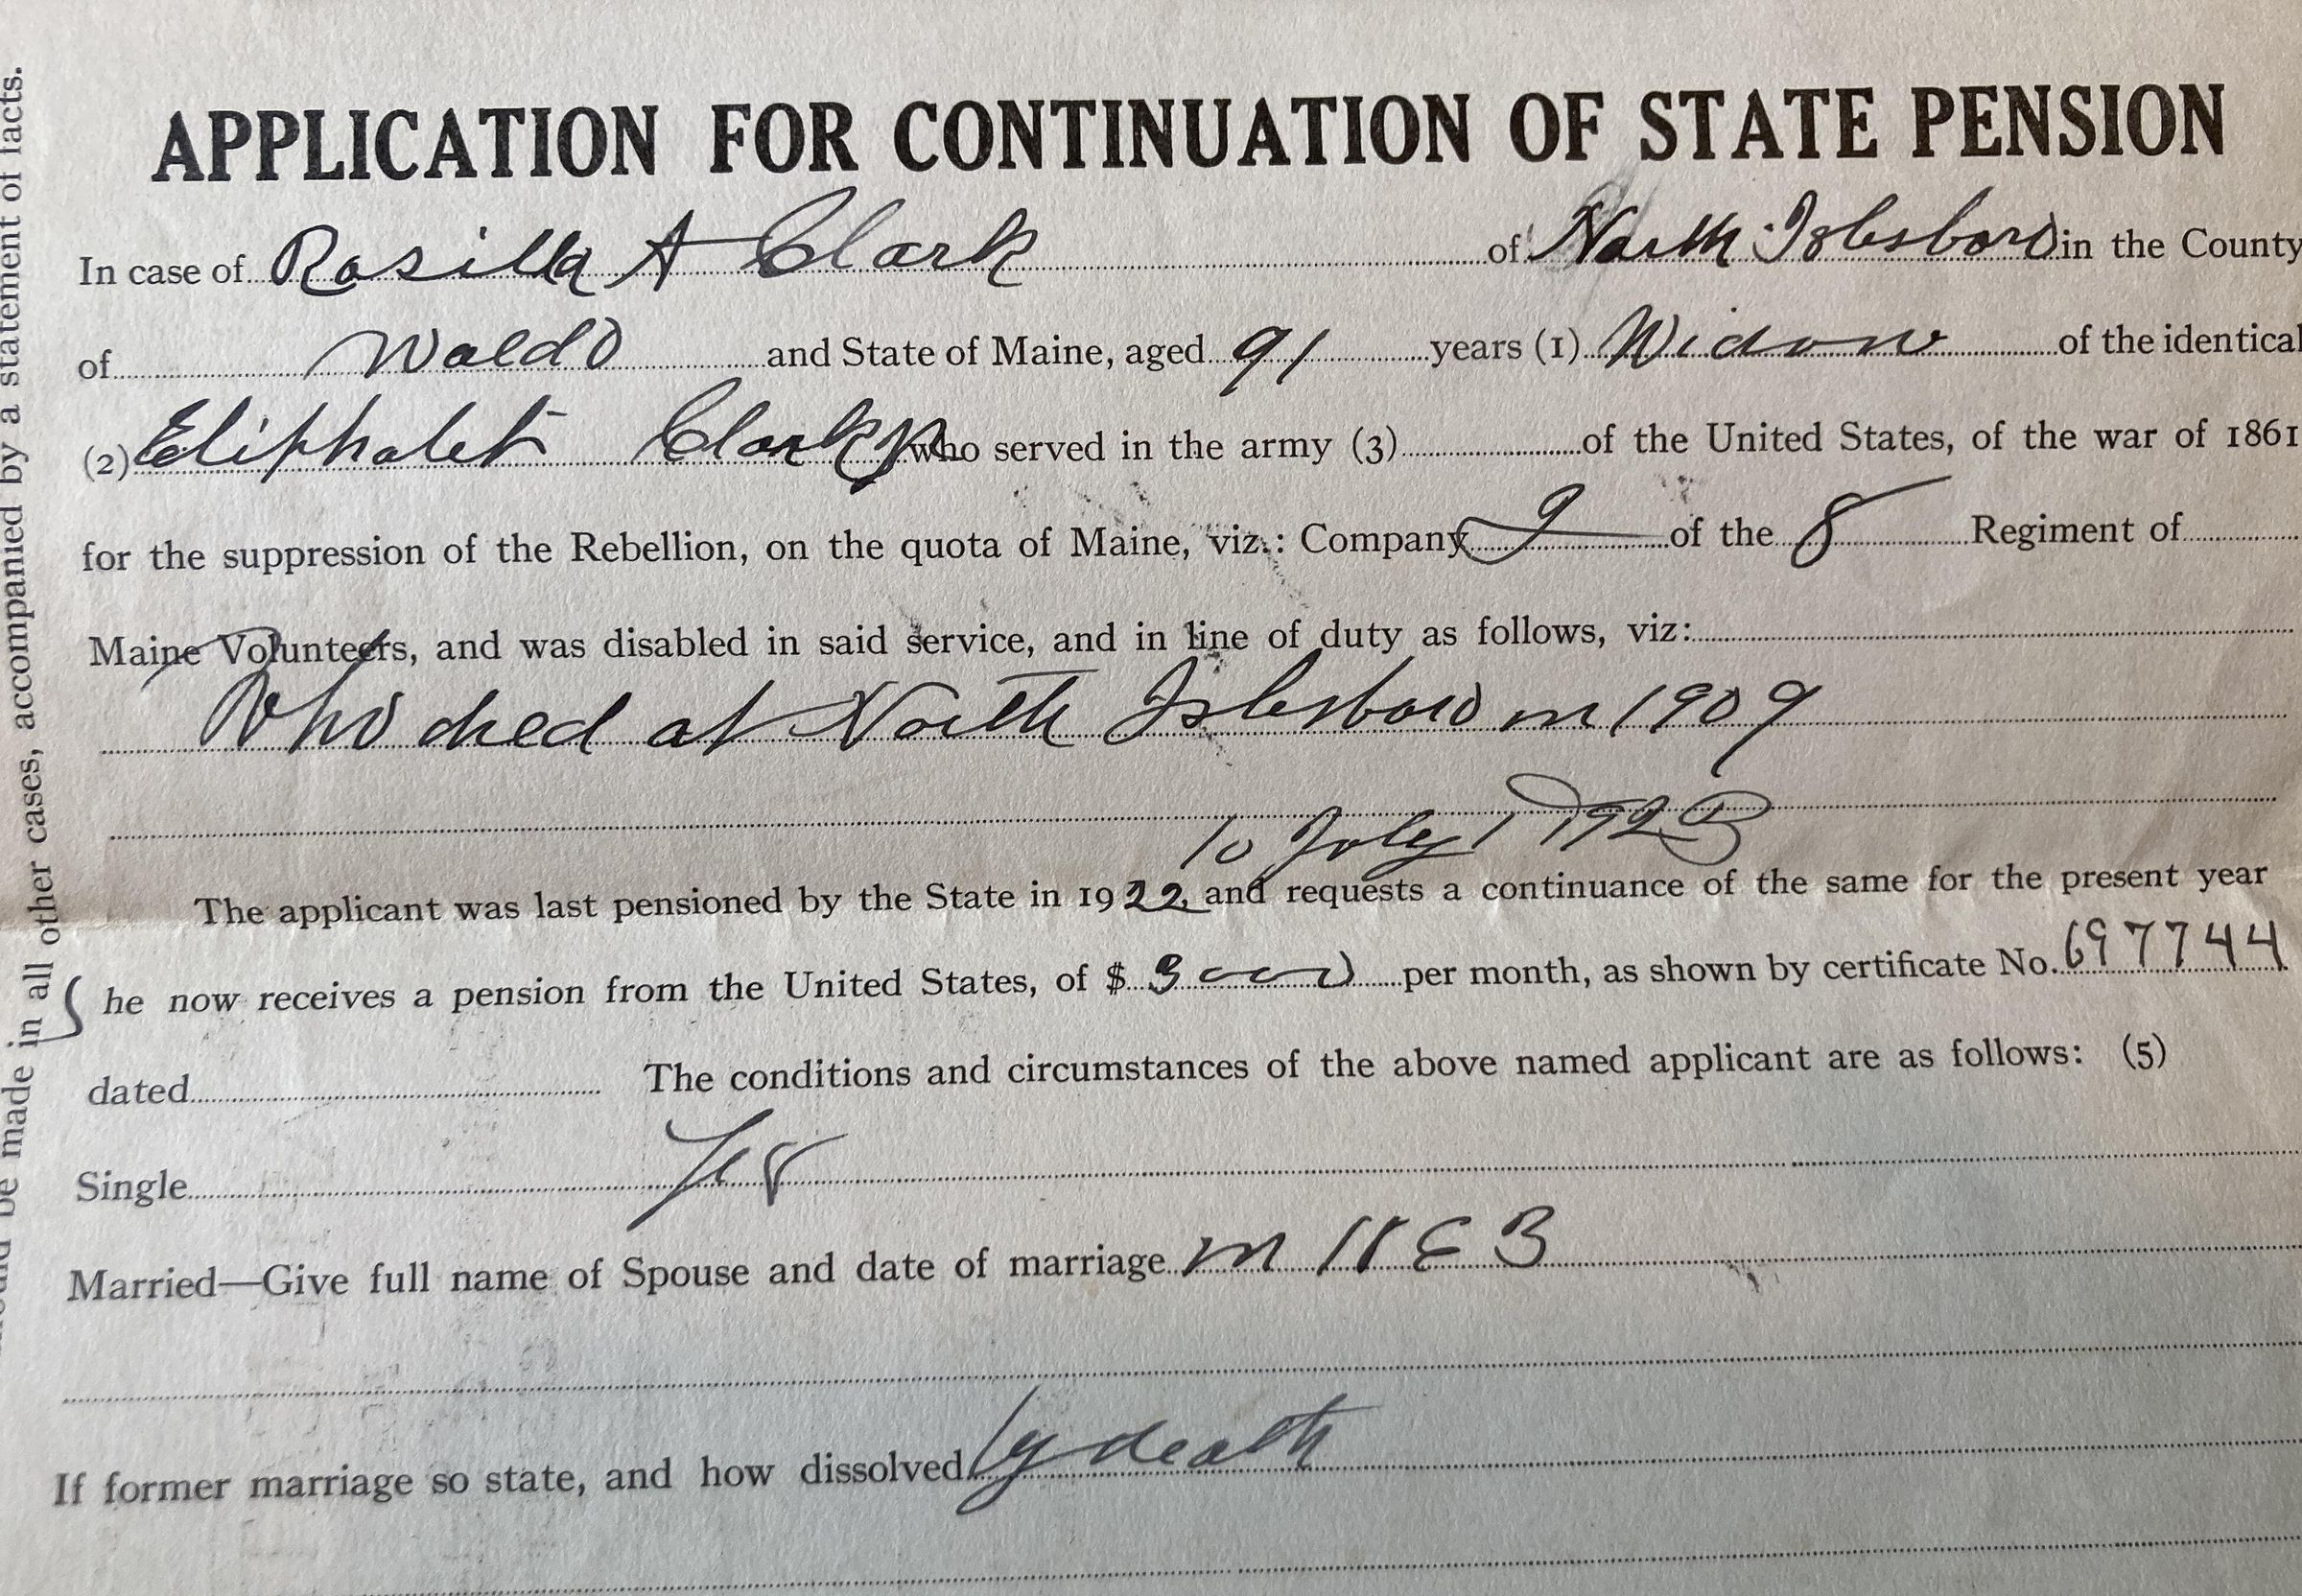 APPLICATION FOR CONTINUATION OF STATE PENSION
In case of Rosilla A Clark of North Islesboro in the County
of Waldo and State of Maine, aged 91 years (1) Widow of the identical
(2) Eliphalet Clark Jr who served in the army (3) of the United States, of the war of 1861
for the suppression of the Rebellion, on the quota of Maine, viz.: Company of the 8 Regiment of
Maine Volunteers, and was disabled in said service, and in line of duty as follows, viz:
Who died at North Islesboro in 1909
to July 1 1923
The applicant was last pensioned by the State in 1922, and requests a continuance of the same for the present year
S he now receives a pension from the United States, of $ per month, as shown by certificate No. 697744
dated The conditions and circumstances of the above named applicant are as follows: (5)
Single Yes
Married—Give full name of Spouse and date of marriage in
If former marriage so state, and how dissolved by death
be made in all other cases, accompanied by a statement of facts.